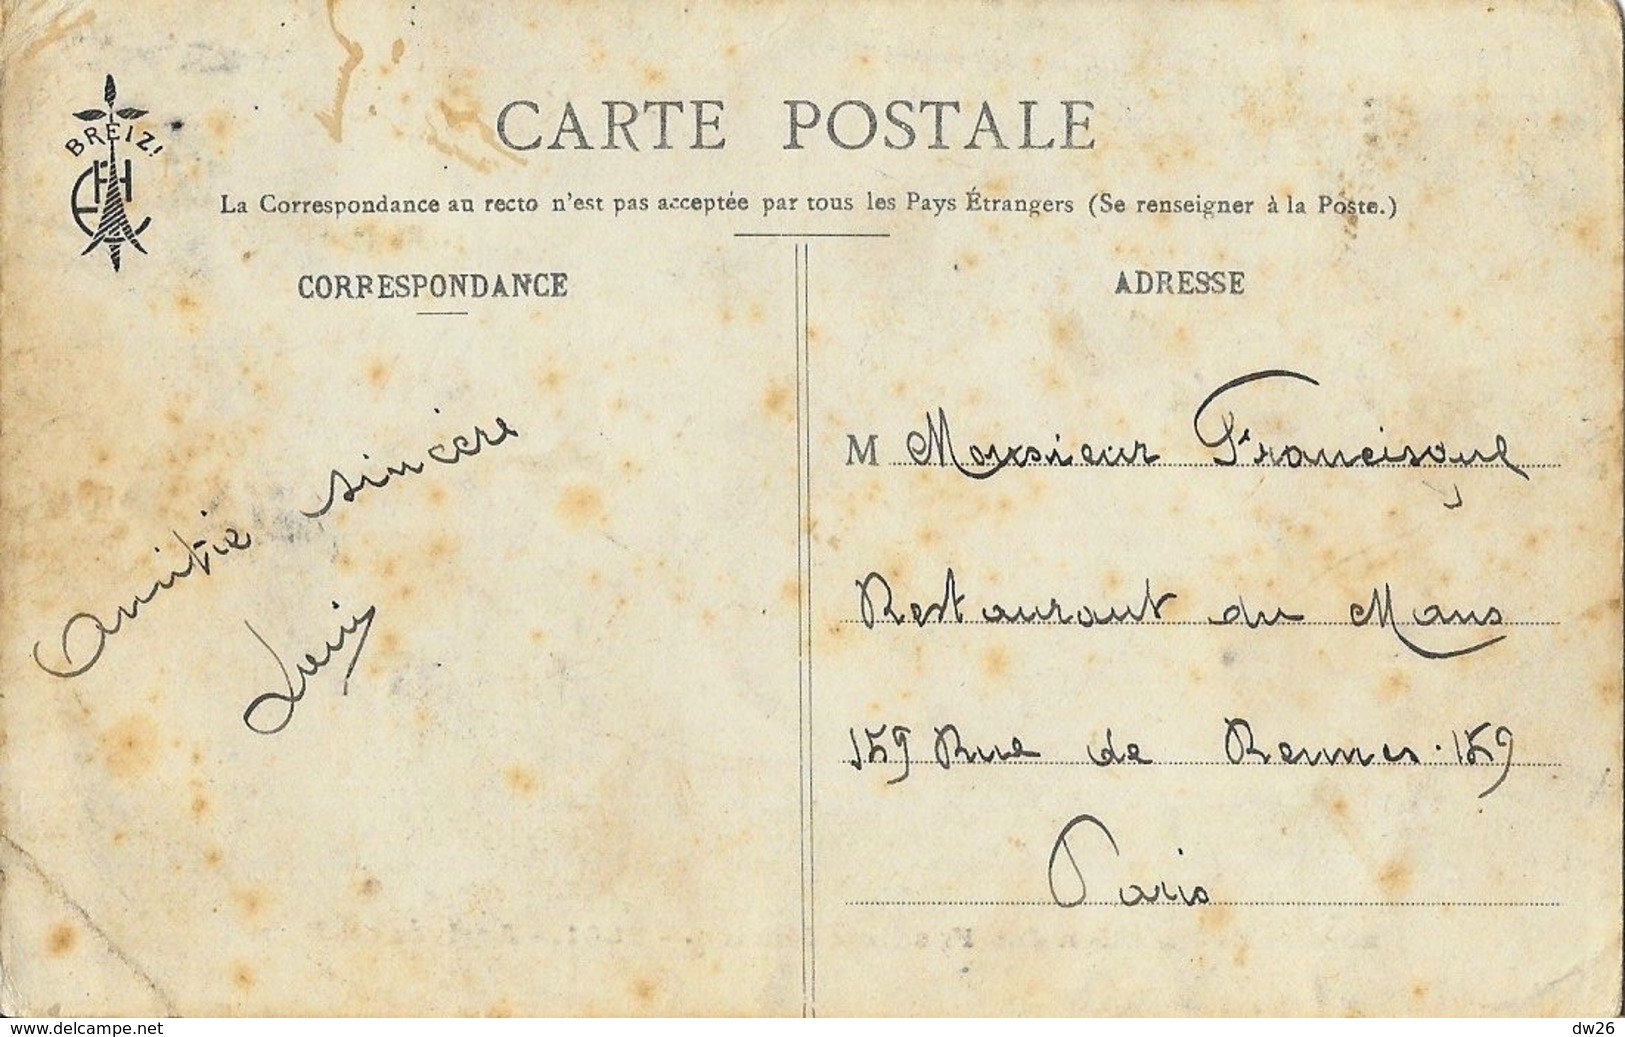 BREIZ!
CARTE POSTALE
La Correspondance au recto n'est pas acceptée par tous les Pays Étrangers (Se renseigner à la Poste.)
CORRESPONDANCE
Amitié sincère
ADRESSE
M Monsieur
Restaurant du Mans
159 Rue de Rennes. 159
Paris
www.delcampe.net
dw26